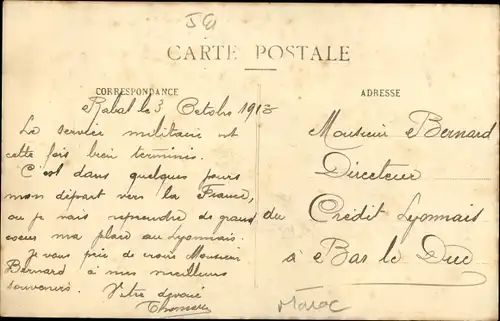 CARTE POSTALE
CORRESPONDANCE
ADRESSE
Rabat le 3 Octobre 1913
Le service militaire est
cette fois bien terminé.
C'est dans quelques jours
mon départ vers la France,
où je vais reprendre de grand
coeur ma place au Lyonnais.
Je vous prie de croire Monsieur
Bernard à mes meilleurs
souvenirs. Votre dévoué
Monsieur Bernard
Directeur
du Crédit Lyonnais
à Bar le Duc
Maroc